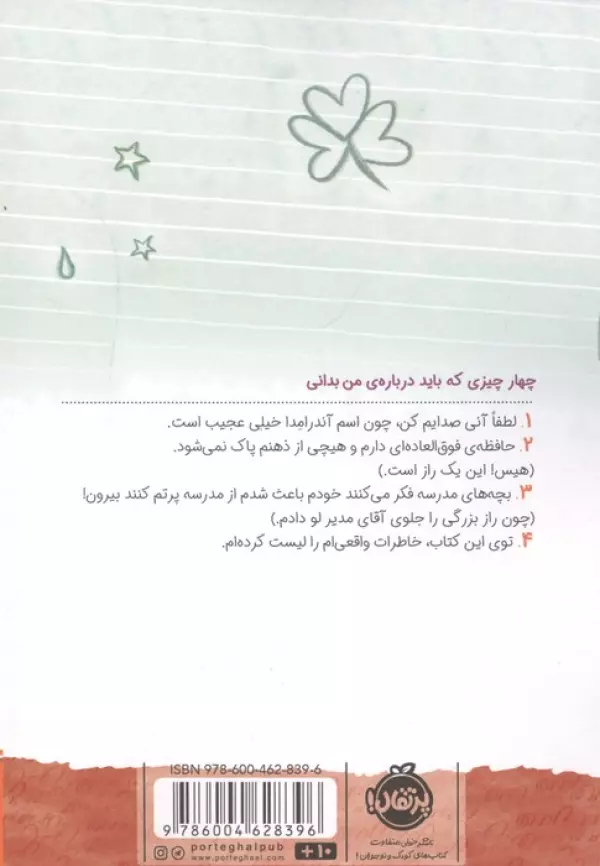 چهار چیزی که باید درباره‌ی من بدانی
۱. لطفاً آنی صدایم کن، چون اسم آندرامِدا خیلی عجیب است.
۲. حافظه‌ی فوق‌العاده‌ای دارم و هیچی از ذهنم پاک نمی‌شود.
(هیس! این یک راز است.)
۳. بچه‌های مدرسه فکر می‌کنند خودم باعث شدم از مدرسه پرتم کنند بیرون!
(چون راز بزرگی را جلوی آقای مدیر لو دادم.)
۴. توی این کتاب، خاطرات واقعی‌ام را لیست کرده‌ام.
ISBN 978-600-462-839-6
9 786004 628396
porteghalpub
www.porteghaal.com
+۱۰
پرتقال!
ناشر خیلی متفاوت
کتاب‌های کودک و نوجوان!